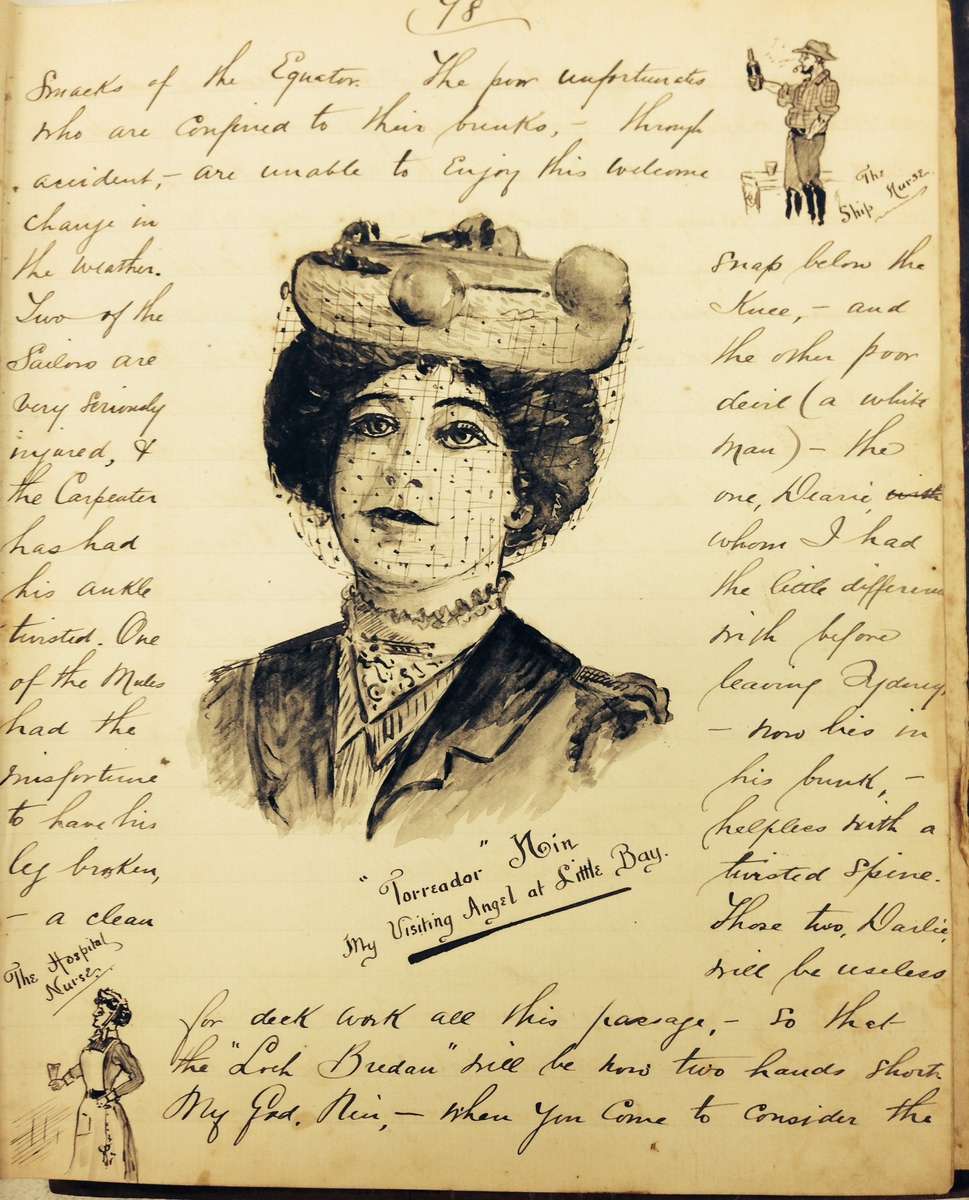 78
Smacks of the Equator. The poor unfortunates
who are confined to their bunks, - through
accident, - are unable to Enjoy this welcome
The
Ship Nurse
change in
the weather.
Two of the
Sailors are
very seriously
injured, &
the Carpenter
has had
his ankle
twisted. One
of the Mules
had the
misfortune
to have his
leg broken,
- a clean
snap below the
Knee, - and
the other poor
devil (a white
man) - the
one, Dearie, with
whom I had
the little difference
with before
leaving Sydney,
- now lies in
his bunk, -
helpless with a
twisted spine.
Those two, Darlie,
will be useless
"Torreador" Nin
My Visiting Angel at Little Bay.
The Hospital
Nurse.
for deck work all this passage, - so that
the "Loch Bredan" will be now two hands short
My God, Nin, - when you come to consider the